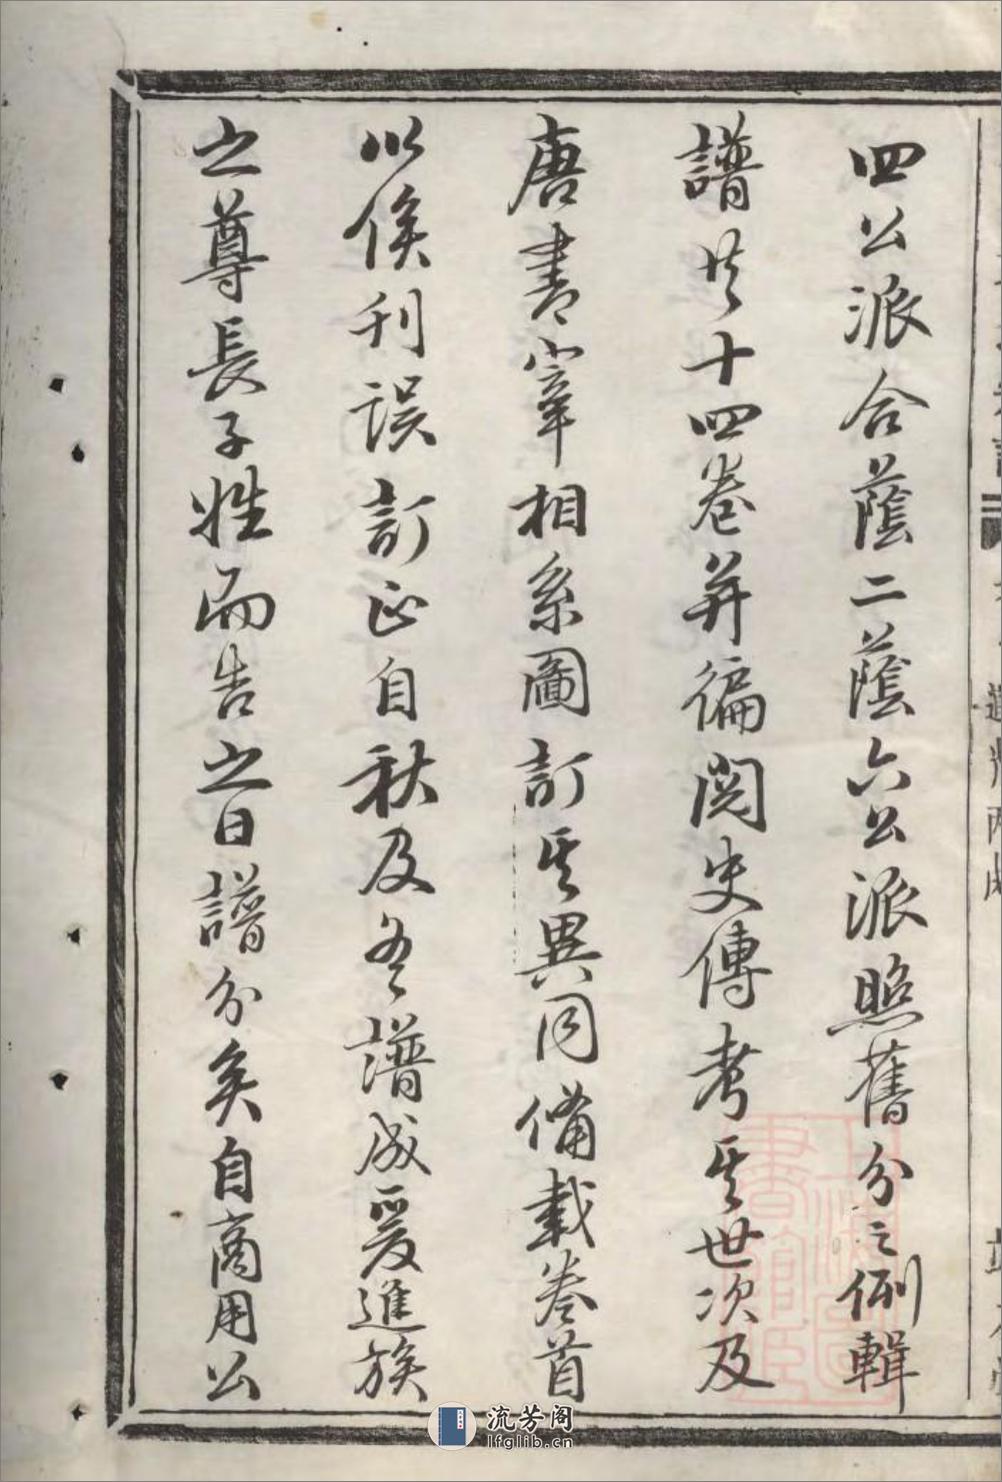 四公派合蔭二蔭六公派照舊分之例輯
譜共十四卷并徧閱史傳考其世次及
唐書宰相系圖訂其異同備載卷首
以俟刊誤訂正自秋及冬譜成爰進族
之尊長子姓而告之曰譜分矣自商用公
上海圖書館藏
流芳阁
lfglib.cn